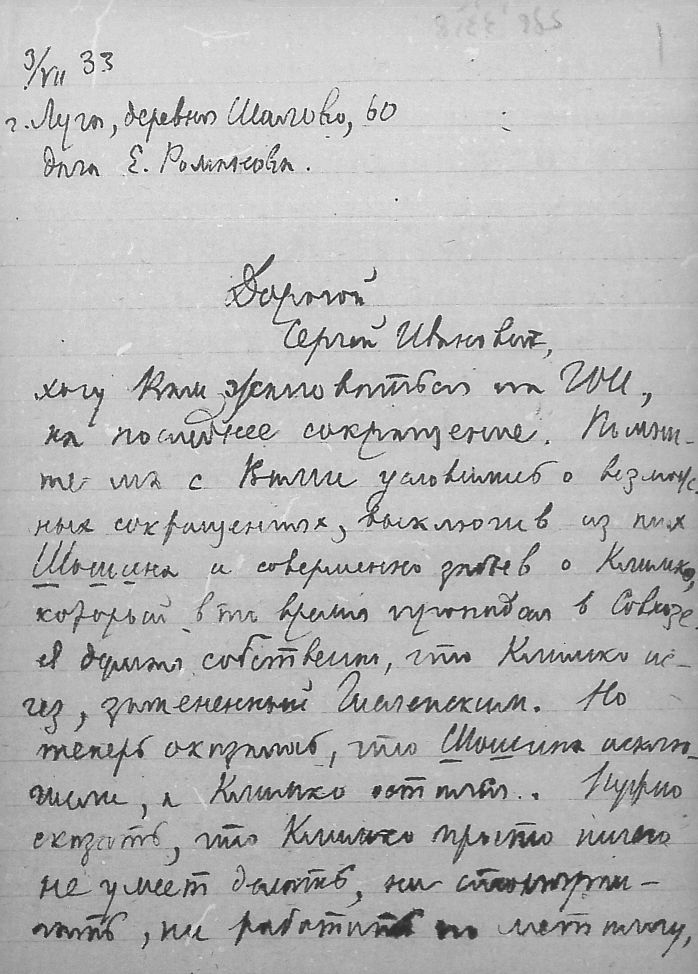 3/VII 33
г. Луга, деревня Шалово, 60
дача Е. Романова.
Дорогой
Сергей Иванович,
хочу Вам жаловаться на ГОИ,
на последнее сокращение. Помни-
те мы с Вами условились о возмож-
ных сокращениях, выключив из них
Шошина и совершенно забыв о Климко,
который в то время пропадал в Совхозе.
Я думал собственно, что Климко ис-
чез, замененный Но
теперь оказалось, что Шошина исклю-
чили, а Климко остался.. Нужно
сказать, что Климко просто ничего
не умеет делать, ни
чать, ни работать по металлу,